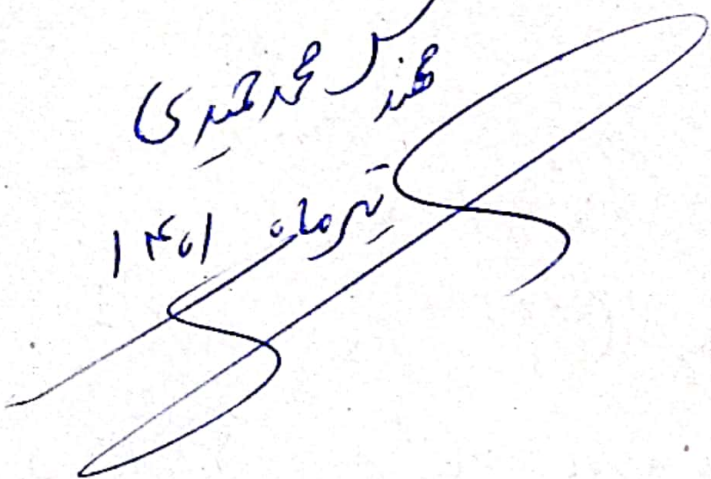 مهندس محمد مهیدی
تیرماه ۱۴۰۱